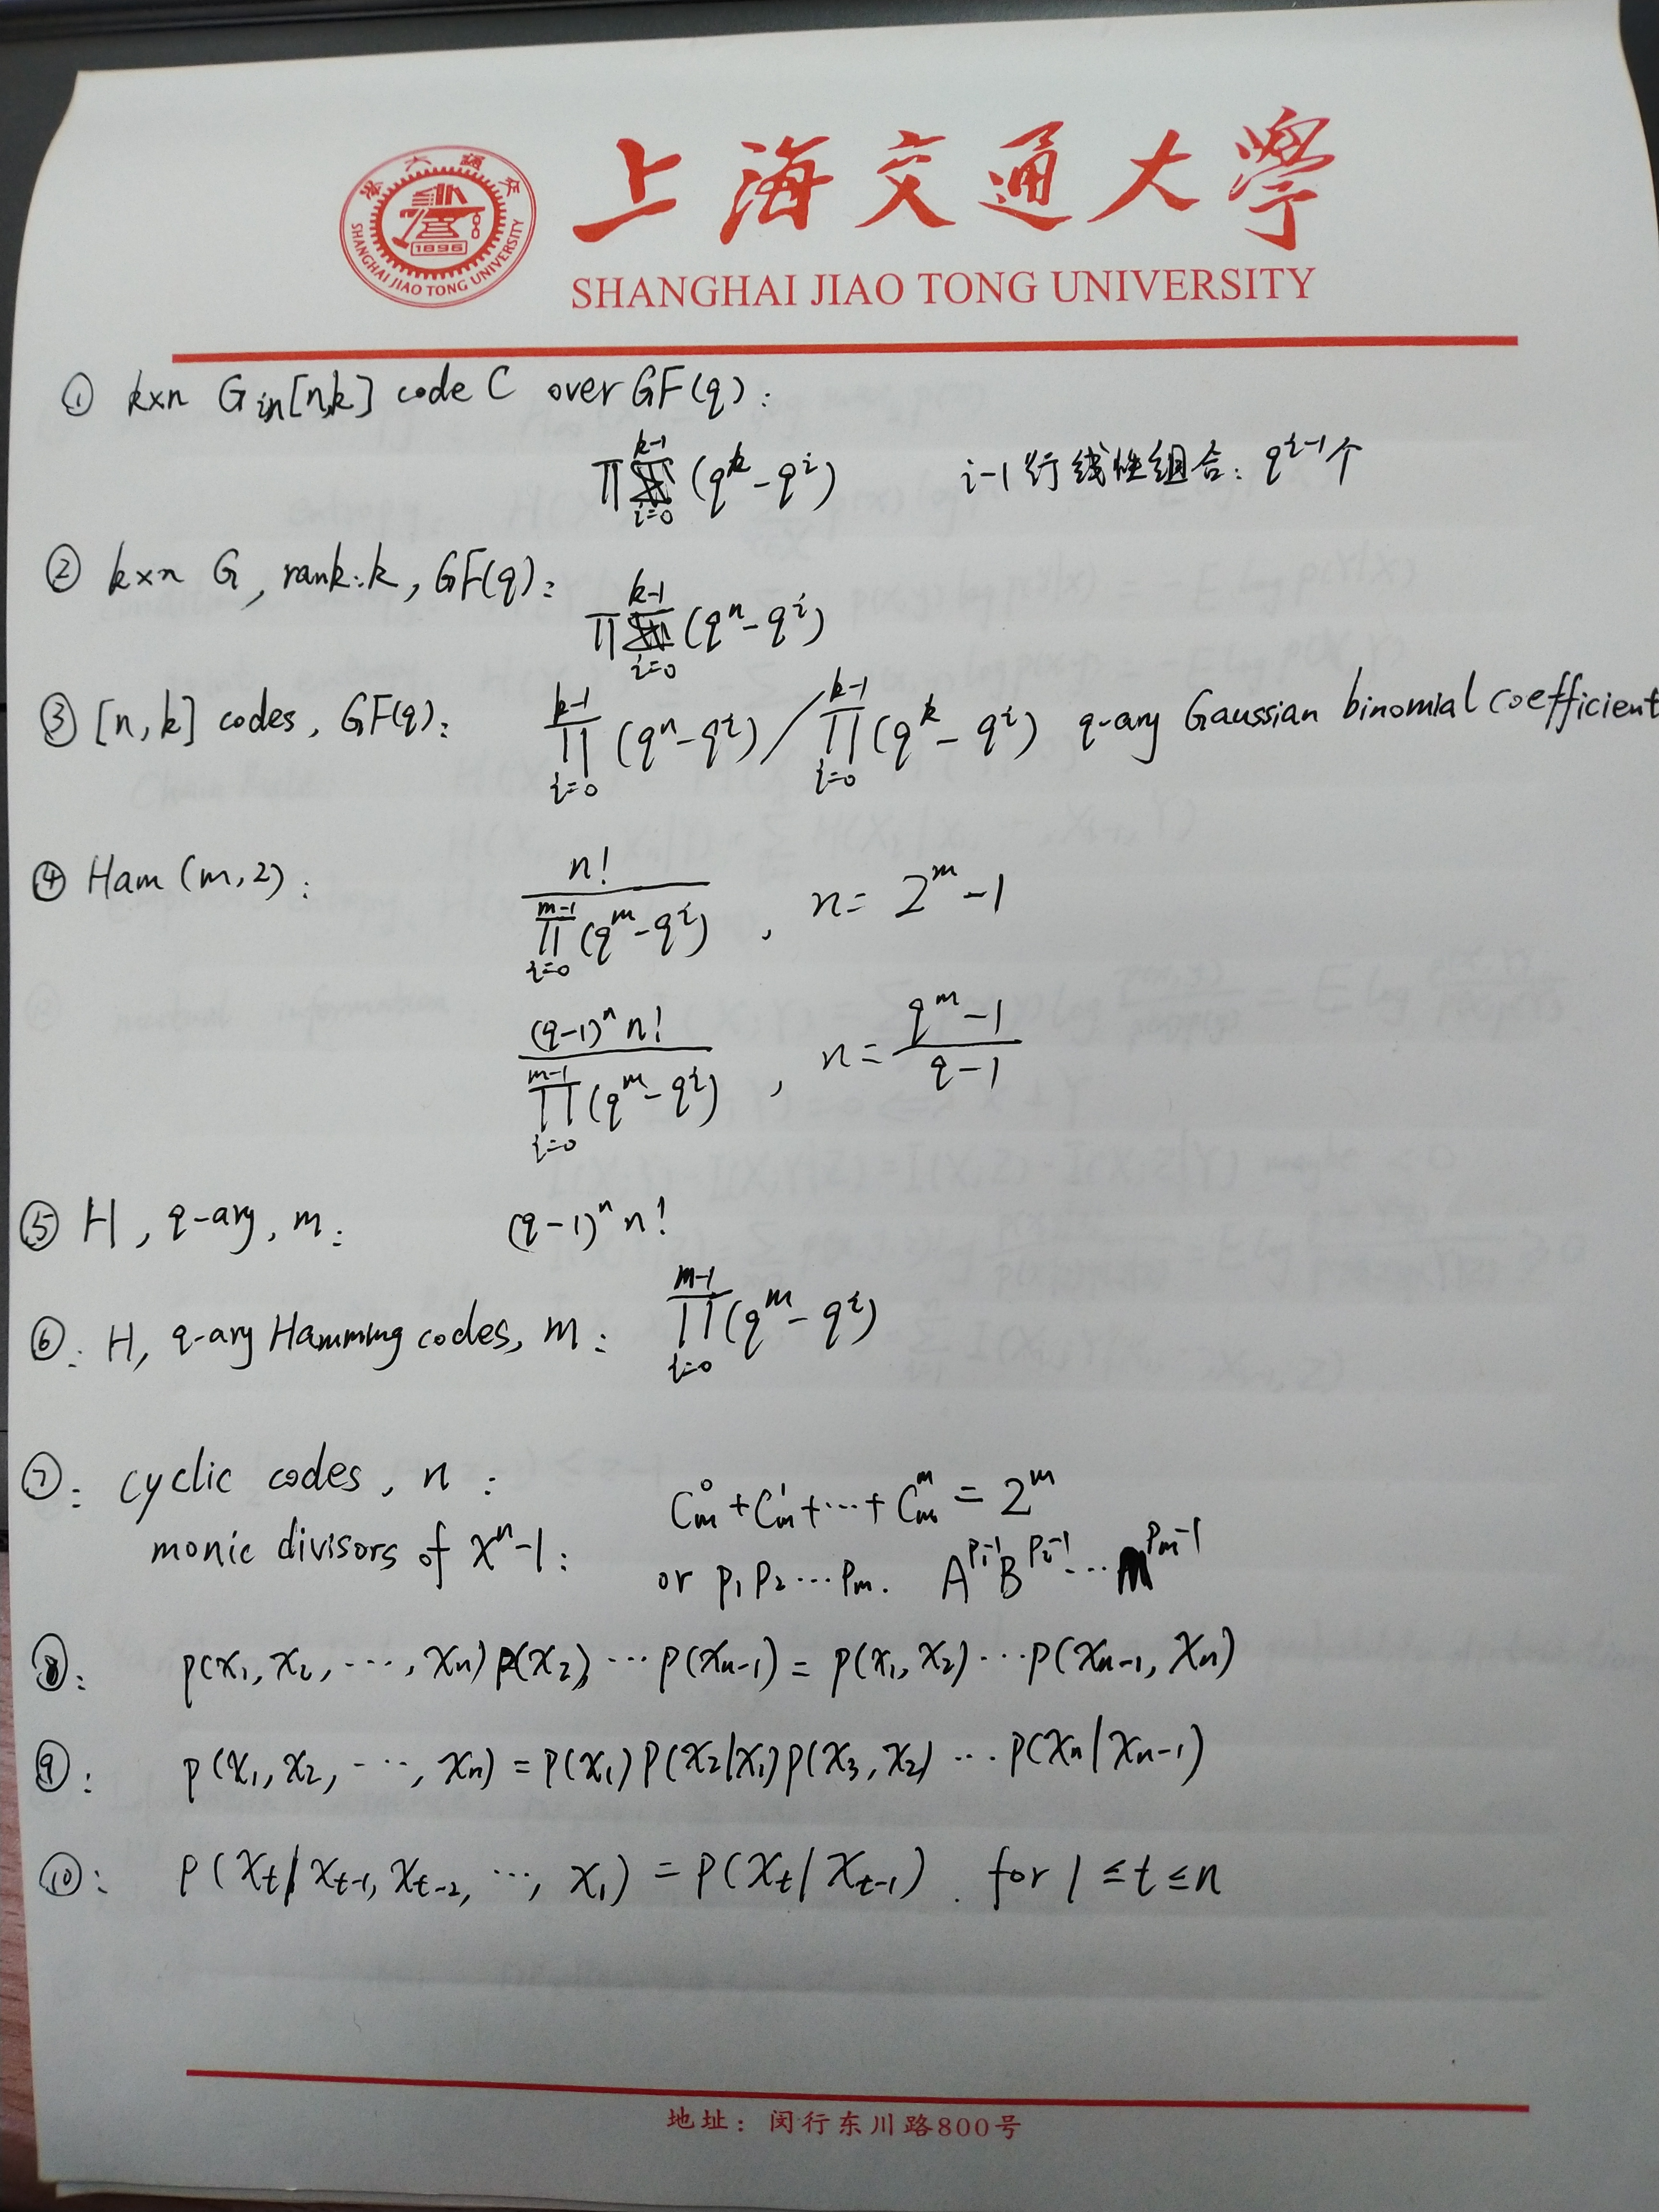 上海交通大學
SHANGHAI JIAO TONG UNIVERSITY
1896
SHANGHAI JIAO TONG UNIVERSITY
① k×n G in [n,k] code C over GF(q):
∏_{i=0}^{k-1} (q^k - q^i) i-1行线性组合: q^{i-1}个
② k×n G, rank:k, GF(q):
∏_{i=0}^{k-1} (q^n - q^i)
③ [n,k] codes, GF(q): ∏_{i=0}^{k-1} (q^n - q^i) / ∏_{i=0}^{k-1} (q^k - q^i) q-ary Gaussian binomial coefficient
④ Ham (m,2): n! / ∏_{i=0}^{m-1} (q^m - q^i) , n = 2^m - 1
(q-1)^n n! / ∏_{i=0}^{m-1} (q^m - q^i) , n = (q^m - 1) / (q - 1)
⑤ H, q-ary, m: (q-1)^n n!
⑥: H, q-ary Hamming codes, m: ∏_{i=0}^{m-1} (q^m - q^i)
⑦: cyclic codes, n: C_m^0 + C_m^1 + ··· + C_m^m = 2^m
monic divisors of x^n - 1: or p_1 p_2 ··· p_m. A^{p_1-1} B^{p_2-1} ··· M^{p_m-1}
⑧: p(x_1, x_2, ···, x_n) p(x_2) ··· p(x_{n-1}) = p(x_1, x_2) ··· p(x_{n-1}, x_n)
⑨: p(x_1, x_2, ···, x_n) = p(x_1) p(x_2|x_1) p(x_3, x_2) ··· p(x_n|x_{n-1})
⑩: p(x_t | x_{t-1}, x_{t-2}, ···, x_1) = p(x_t | x_{t-1}). for 1 ≤ t ≤ n
地址: 闵行东川路800号